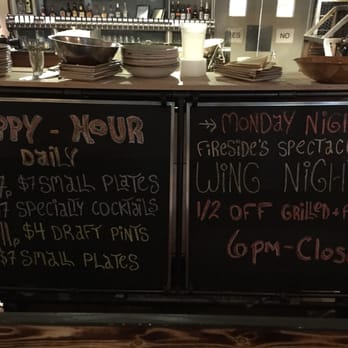 PPY - HOUR
DAILY
7, $7 SMALL PLATES
7 SPECIALTY COCKTAILS
11, $4 DRAFT PINTS
$7 SMALL PLATES
→ MONDAY NIGH
FIRESIDE'S SPECTACU
WING NIGH
1/2 OFF GRILLED + F
6PM - CLOS
YES
NO